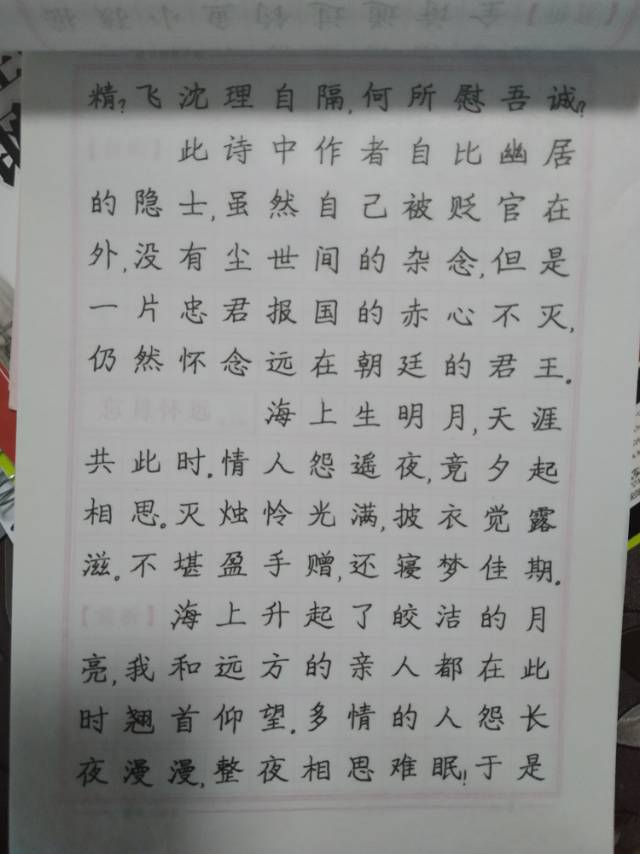 精?飞沈理自隔,何所慰吾诚?
【赏析】此诗中作者自比幽居
的隐士,虽然自己被贬官在
外,没有尘世间的杂念,但是
一片忠君报国的赤心不灭,
仍然怀念远在朝廷的君王。
望月怀远 海上生明月,天涯
共此时。情人怨遥夜,竟夕起
相思。灭烛怜光满,披衣觉露
滋。不堪盈手赠,还寝梦佳期。
【赏析】海上升起了皎洁的月
亮,我和远方的亲人都在此
时翘首仰望。多情的人怨长
夜漫漫,整夜相思难眠!于是